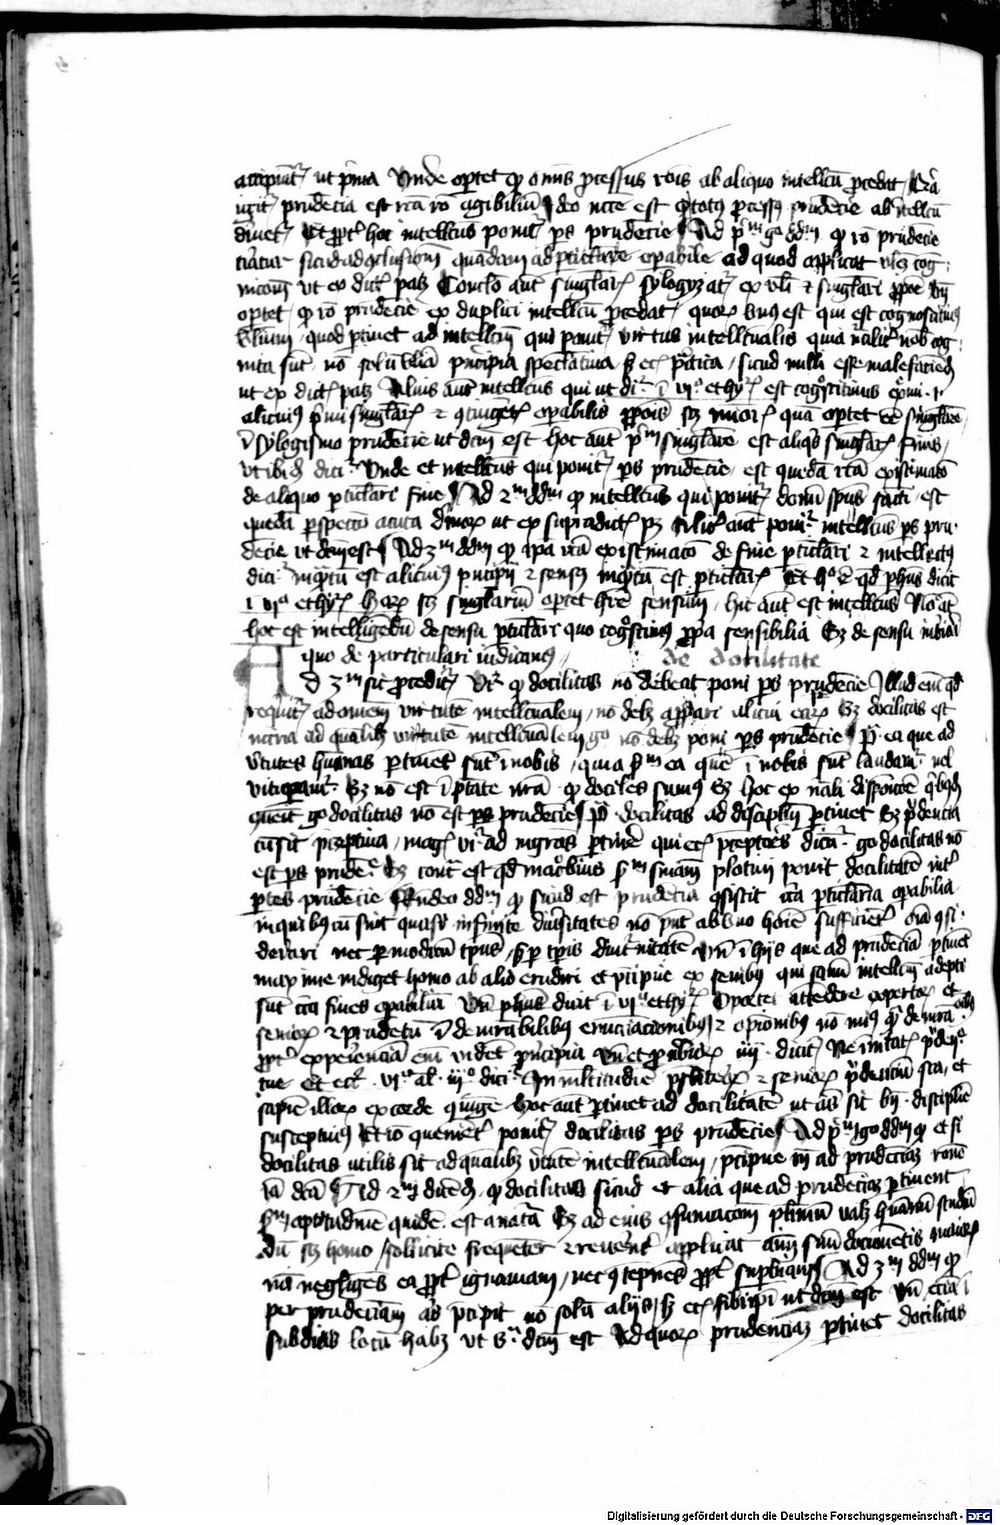 accipiuntur ut prima Unde oportet quod omnis processus rationis ab aliquo intellectu procedat Quia
igitur prudencia est recta ratio agibilium Ideo necesse est quod totus processus prudencie ab intellectu
derivetur Et propter hoc intellectus ponitur pars prudencie Ad primum ergo dicendum quod ratio prudencie
terminatur sicud ad conclusionem quandam ad particulare operabile ad quod applicat universalem cog
nicionem ut ex dictis patet Conclusio autem singularis sylogyzatur ex universali et singulari propositione unde
oportet quod ratio prudencie ex duplici intellectu procedat quorum unus est qui est cognoscitivus
universalium quod pertinet ad intellectum qui ponitur virtus intellectualis quia naturaliter nobis cog
nita sunt non solum universalia principia speculativa sed eciam practica sicud nulli esse malefaciendum
ut ex dictis patet Alius autem intellectus qui ut dicitur in vi ethycorum est cognoscitivus extremi i
alicuius primi singularis et contingentis operabilis propositionis scilicet minoris quam oportet esse singularem
in sylogismo prudencie ut dictum est hoc autem primum singulare est aliquis singularis finis
ut ibidem dicitur Unde et intellectus qui ponitur pars prudencie est quedam recta existimatio
de aliquo particulari fine Ad 2m dicendum quod intellectus qui ponitur donum spiritus sancti est
quedam perspectio acuta divinorum ut ex supradictis patet Aliter autem ponitur intellectus pars pru
dencie ut dictum est Ad 3m dicendum quod ipsa recta existimacio de fine particulari et intellectus
dicitur inquantum est alicuius principii et sensus inquantum est particularis Et hoc est quod philosophus dicit
in vi ethycorum horum scilicet singularium oportet habere sensum hic autem est intellectus Non autem
hoc est intelligendum de sensu particulari quo cognoscimus propria sensibilia Sed de sensu interiori
quo de particulari iudicamus
de docilitate
Ad 3m sic proceditur Videtur quod docilitas non debeat poni pars prudencie Illud enim quod
requiritur ad omnem virtutem intellectualem non debet appropriari alicui earum Sed docilitas est
necessaria ad quamlibet virtutem intellectualem ergo non debet poni pars prudencie Preterea ea que ad
virtutes humanas pertinent sunt in nobis quia secundum ea que in nobis sunt laudamur vel
vituperamur Sed non est in potestate nostra quod dociles sumus Sed hoc ex naturali dispositione quibusdam
contingit ergo docilitas non est pars prudencie Preterea docilitas ad discipulum pertinet Sed prudencia
cum sit preceptiva magis videtur ad magistros pertinere qui eciam preceptores dicuntur ergo docilitas non
est pars prudencie Sed contra est quod macrobius secundum sentenciam plotini ponit docilitatem inter
partes prudencie Respondeo dicendum quod sicud est prudencia consistit circa particularia operabilia
in quibus cum sint quasi infinite diversitates non possunt ab uno homine sufficienter omnia consi
derari nec per modicum tempus sed per temporis diuturnitatem Unde in hiis que ad prudenciam pertinent
maxime indiget homo ab alio erudiri et precipue ex senibus qui sanum intellectum adepti
sunt circa fines operabilium Unde philosophus dicit in vi ethycorum Oportet attendere expertorum et
seniorum et prudentum indemonstrabilibus enunciacionibus et opinionibus non minus quam demonstracionibus
propter experienciam enim vident principia Unde et proverbiorum iii dicitur Ne innitaris prudencie
tue Et eccl vi al iii dicitur In multitudine presbiterorum et seniorum prudencium sta et
sapiencie illorum ex corde coniunge Hoc autem pertinet ad docilitatem ut aliquis sit bene discipline
susceptivus Et ideo convenienter ponitur docilitas pars prudencie Ad primum ergo dicendum quod et si
docilitas utilis sit ad quamlibet virtutem intellectualem precipue tamen ad prudenciam ratione
iam dicta Ad 2m dicendum quod docilitas sicud et alia que ad prudenciam pertinent
secundum aptitudinem quidem est a natura Sed ad eius consumacionem plurimum valet humanum studium
dum scilicet homo sollicite frequenter et reverenter applicat animum suum documentis maiorum
non negligens ea propter ignaviam nec contempnens propter superbiam Ad 3m dicendum quod
per prudenciam aliquis precipit non solum aliis sed eciam sibi ipsi ut dictum est Unde eciam in
subditis locum habet ut supra dictum est Ad quorum prudenciam pertinet docilitas
Digitalisierung gefördert durch die Deutsche Forschungsgemeinschaft - DFG